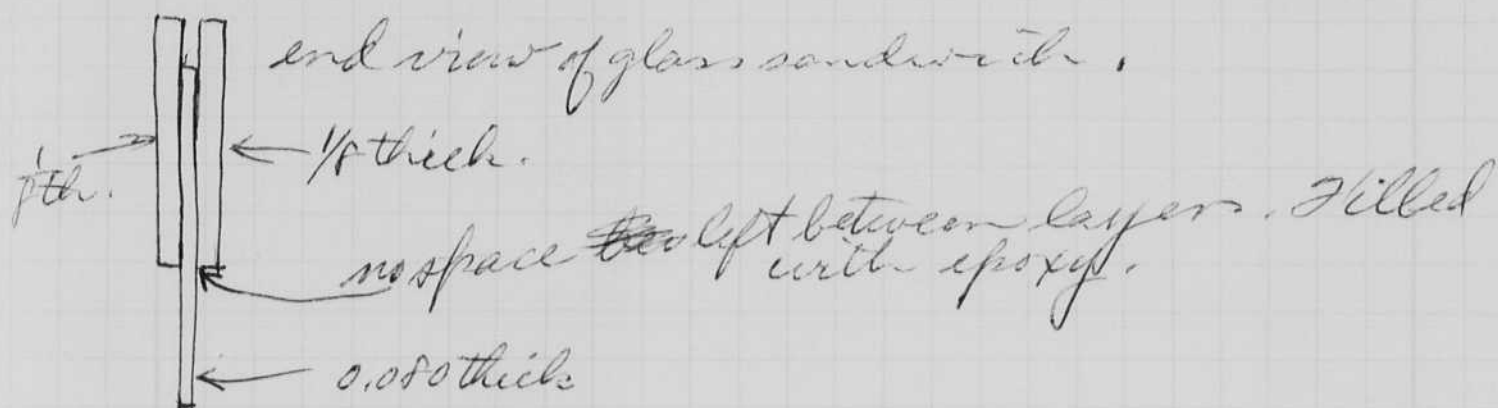 end view of glass sandwich.
1/8th.
1/8 thick.
no space left between layers. Filled
with epoxy.
0.080 thick